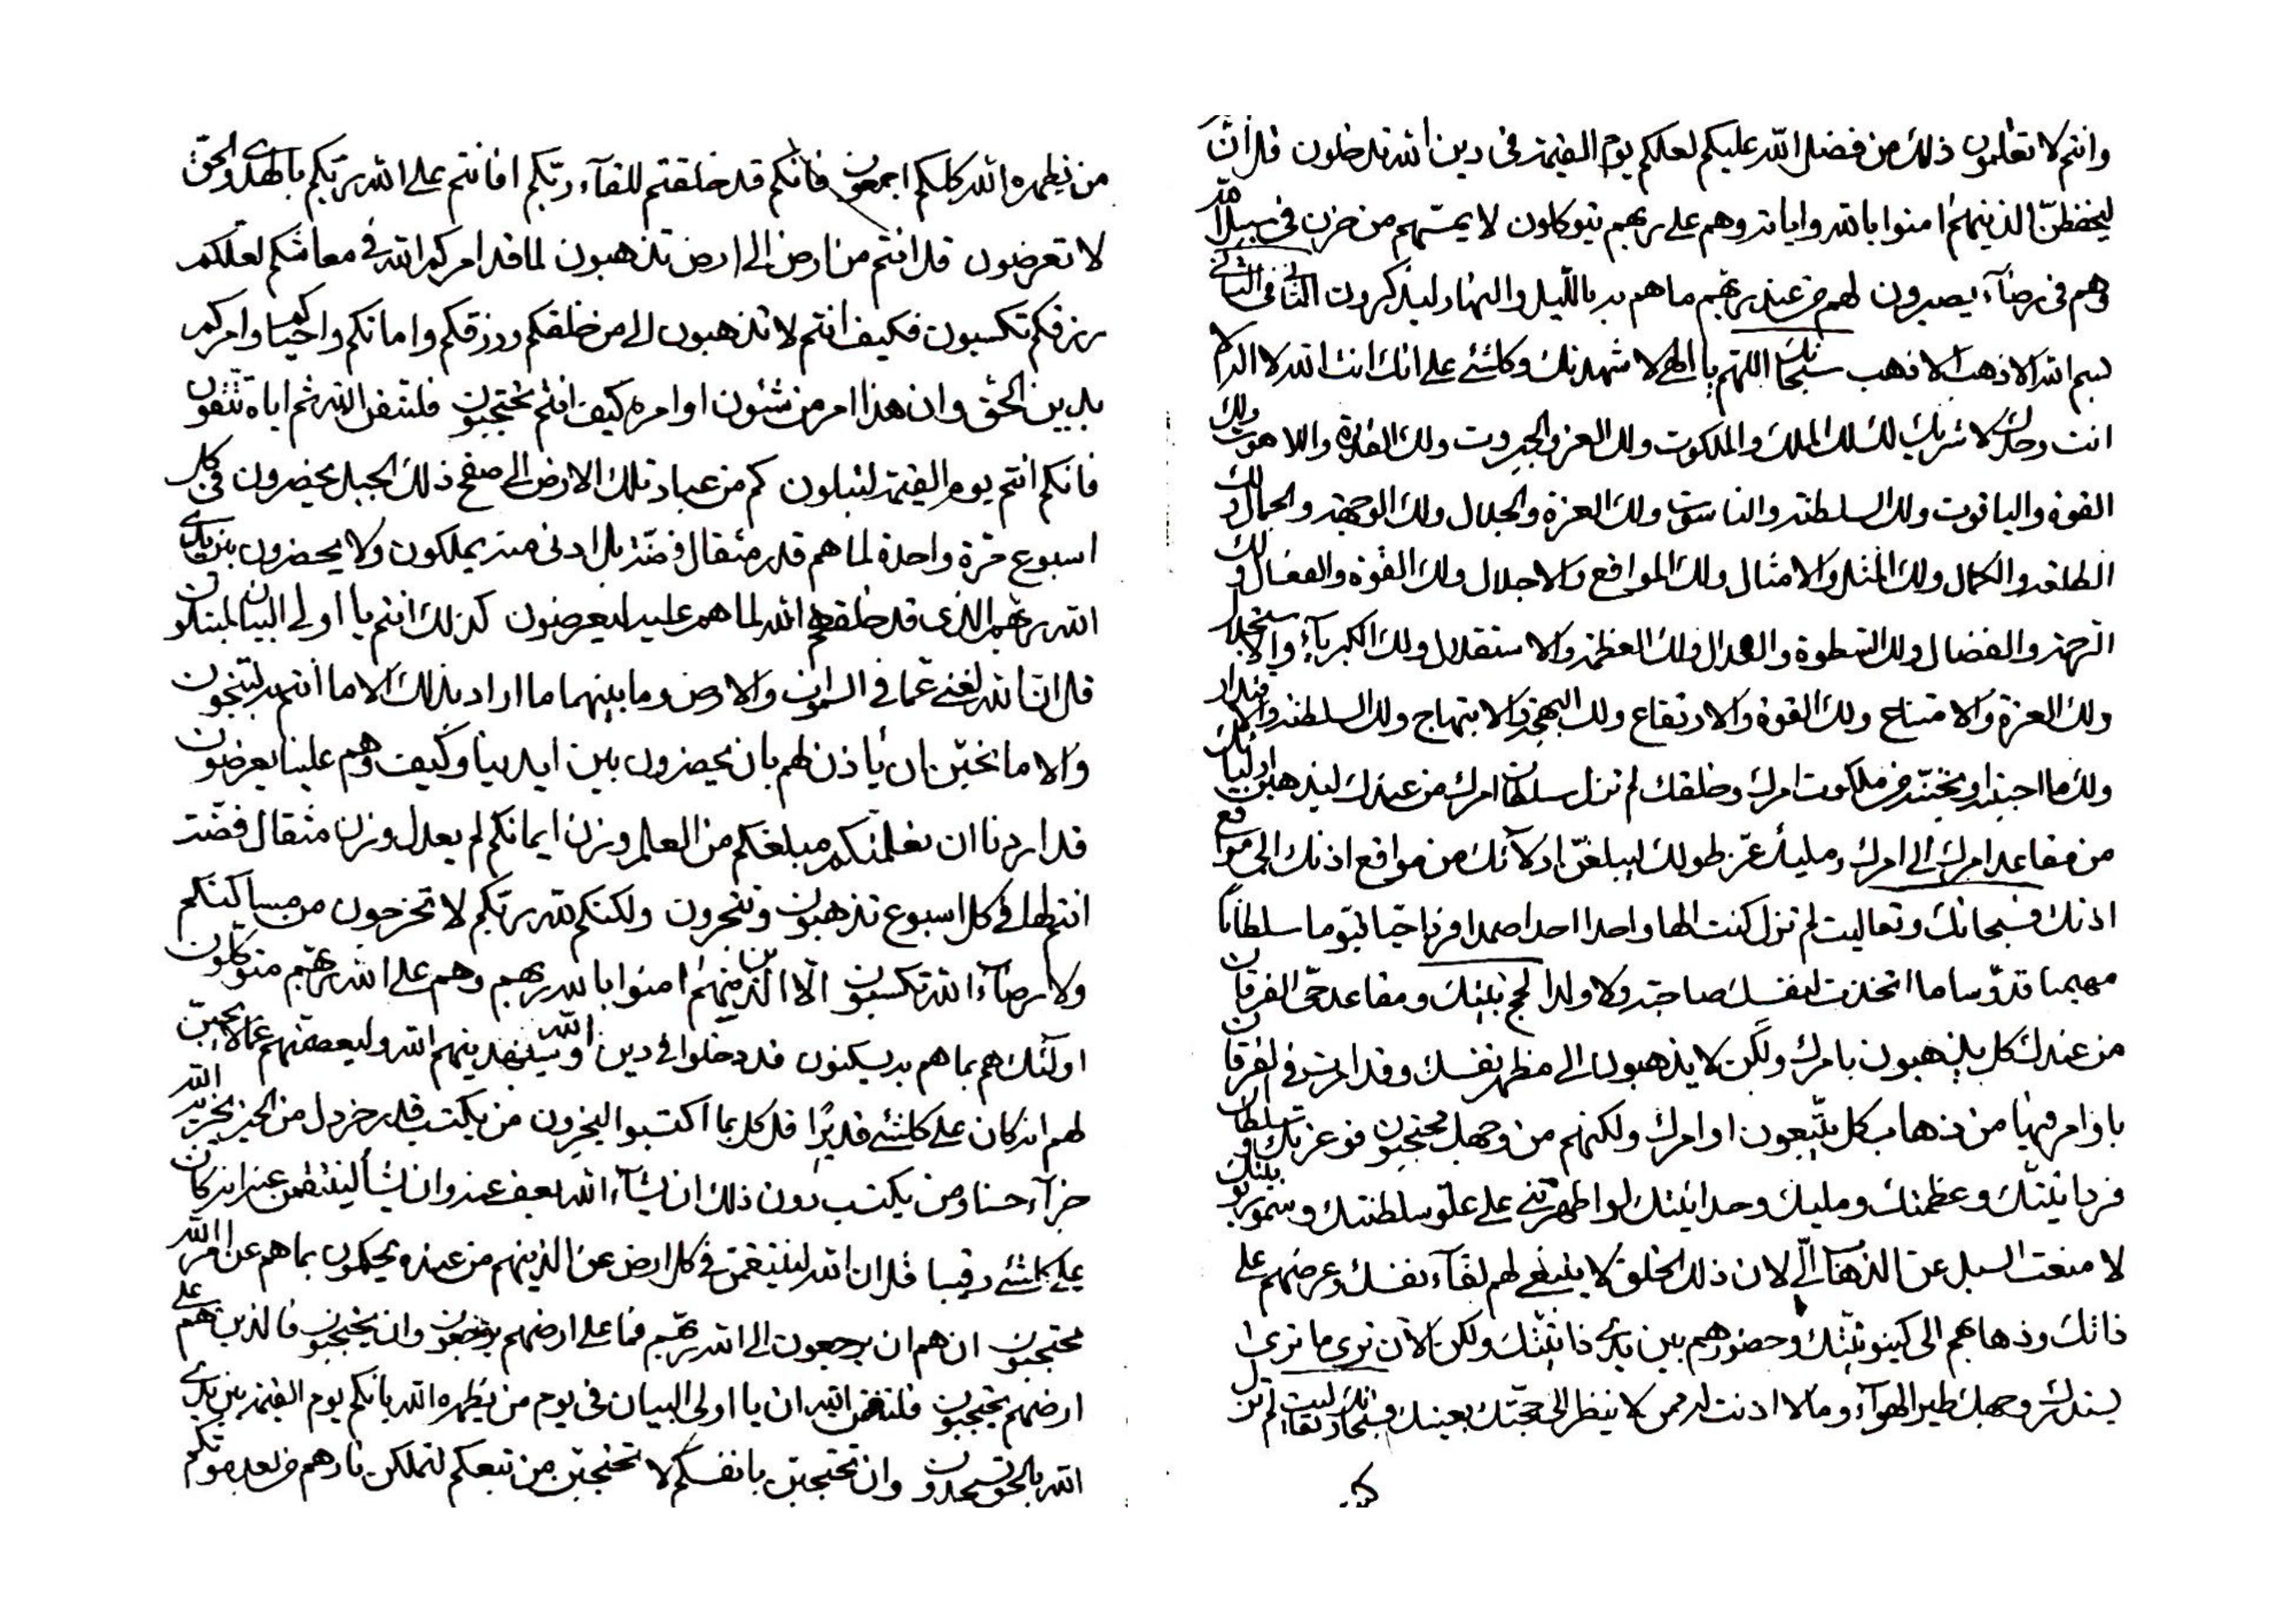 وانتم لا تعلمون ذلك من فضل الله عليكم لعلكم يوم القيمة في دين الله تدخلون قل ان الله
ليحفظن الذينهم امنوا بالله واياته وهم على ربهم يتوكلون لا يمسهم من حزن في سبيل الله
وهم في رضاء يصبرون لهم من عند ربهم ما هم به بالليل والنهار ليذكرون الثاني في الثاني
بسم الله الاذهب الاذهب سبحانك اللهم يا الهي لاشهدنك وكلشئ على انك انت الله لا اله الا
انت وحدك لا شريك لك لك الملك والملكوت ولك العز والجبروت ولك القدرة واللاهوت ولك
القوة والياقوت ولك السلطنة والناسوت ولك العزة والجلال ولك الوجهة والجمال ولك
الطلعة والكمال ولك المثل والامثال ولك المواقع والاجلال ولك القوة والفعال ولك
الرحمة والفضال ولك السطوة والعدال ولك العظمة والاستقلال ولك الكبرياء والاستجلال
ولك العزة والامتناع ولك القوة والارتفاع ولك البهجة والابتهاج ولك السلطنة والاقتدار
ولك ما احببته او تحبنه من ملكوت امرك وخلقك لم تزل سلطان امرك من عندك ليذهبن اوليائك
من مقاعد امرك الى امرك ومليك عز طولك ليبلغن ادلائك من مواقع اذنك الى مواقع
اذنك فسبحانك وتعاليت لم تزل كنت الها واحدا احدا صمدا فردا حيا قيوما سلطانا
مهيمنا قدوسا ما اتخذت لنفسك صاحبة ولا ولدا لحج بيتك ومقاعد حي الفرقان
من عندك كل يذهبون بامرك ولكن لا يذهبون الى مظهر نفسك وقد امرت في الفرقان
باوامر فيها من ذهاب كل يتبعون اوامرك ولكنهم من وجهك محتجبون فوعزتك وسلطان
فردانيتك وعظمتك ومليك وحدانيتك لو اظهرتني على علو سلطنتك وسمو ربوبيتك
لا منعت السبل عن الذهاب الي لان ذلك الخلق لا ينبغي لهم لقاء نفسك وعرضهم على
ذاتك وذهابهم الى كينونيتك وحضورهم بين يدي ذاتيتك ولكن الان ترى ما ترى
وجهك طير الهواء وما لا اذنت له من لا ينظر الى حجتك بعينك فسبحانك وتعاليت لم تزل
كنت
من يظهره الله كلكم اجمعون فانكم قد خلقتم للقاء ربكم افانتم على الله ربكم بالهدى والحق
لا تعرضون قل انتم من ارض الى ارض تذهبون لما قد امركم الله في معاشكم لعلكم
رزقكم تكسبون فكيف انتم لا تذهبون الى من خلقكم ورزقكم واماتكم واحياكم وامركم
بدين الحق وان هذا امر من شئون اوامره كيف انتم تحتجبون فلتتقن الله ثم اياه تتقون
فانكم انتم يوم القيمة لتبلون كم من عباد تلك الارض الى صقع ذلك الجبل يحضرون في كل
اسبوع مرة واحدة لما هم قدر مثقال فضة بل ادنى منه يملكون ولا يحضرون بين يدي
الله ربهم الذي قد خلقهم الله لما هم عليه ليعرضون كذلك انتم يا اولي البيان لمبتلون
قل ان الله لغني عما في السموات والارض وما بينهما ما اراد بذلك الا ما انتم به لتنجون
والا ما نحبن ان ياذن لهم بان يحضرون بين ايدينا وكيف وهم علينا يعرضون
قد اردنا ان نعلمنكم مبلغكم من العلم وزن ايمانكم لم يعدل وزن مثقال فضة
انتم لها في كل اسبوع تذهبون وتتجرون ولكنكم لله ربكم لا تخرجون من مساكنكم
ولا رضاء الله تكسبون الا الذينهم امنوا بالله ربهم وهم على الله ربهم متوكلون
اولئك هم بما هم به يسكنون قد دخلوا في دين الله وسينقذ ينهم الله وليعصمنهم عما لا يحبن
لهم انه كان على كلشئ قديرا قل كل بما اكتسبوا ليجزون من يكتسب قدر خردل من الخير يجزيه الله
جزاء حسنا ومن يكتسب دون ذلك ان يشاء الله يعف عنه وان يشاء لينتقمن عنه انه كان
على كلشئ رقيبا قل ان الله لينتقمن في كل ارض عن الذينهم من عنده يحكمون بما هم عن امر الله
محتجبون ان هم ان يرجعون الى الله ربهم فما على ارضهم يرجعون وان يحتجبون فالذين هم على
ارضهم يحتجبون فلتتقن الله ان يا اولي البيان في يوم من يظهره الله بانكم يوم القيمة بين يدي
الله بالحق تسجدون وان تحتجبن بانفسكم لا تحتجبن من تبعكم لتملكن نارهم من بعد موتكم